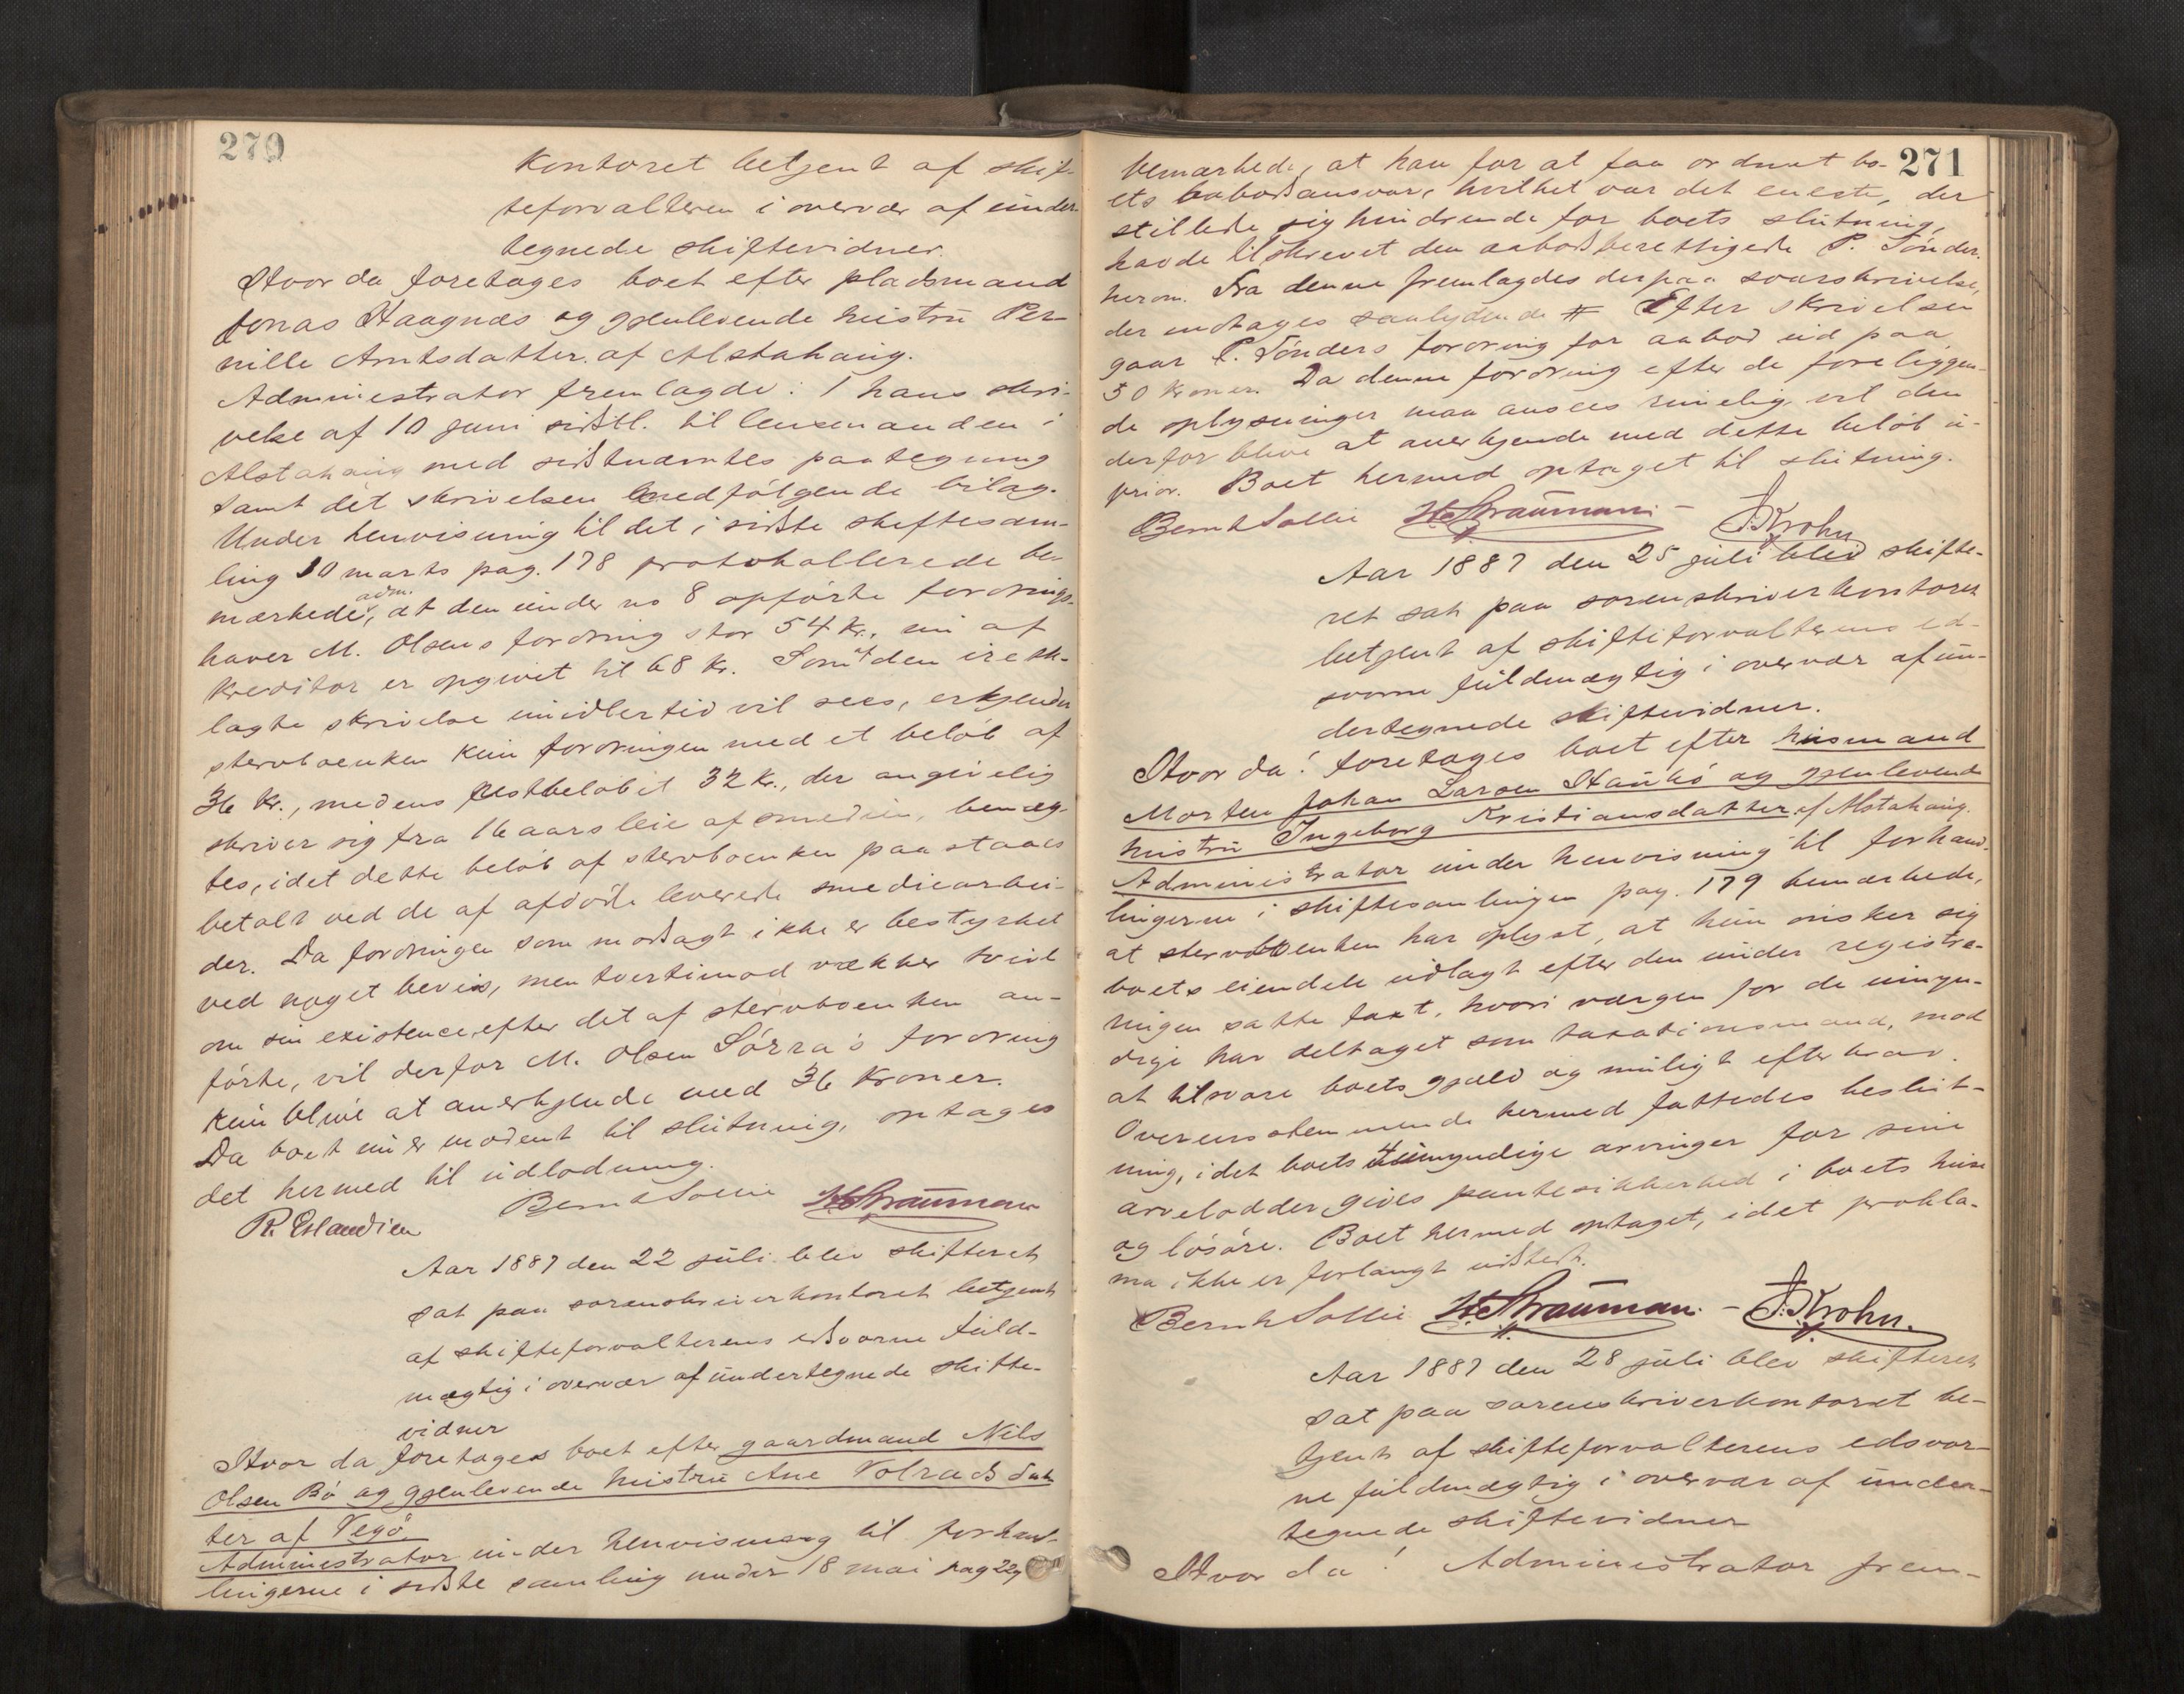 270
kontoret betjent af skif-
teforvalteren i overvær af under-
tegnede skiftevidner.
Hvor da foretages boet efter pladsmand
Jonas Haagnæs og gjenlevende hustru Per-
nille Arntsdatter af Alstahaug.
Administrator fremlagde: 1 hans skri-
velse af 10 juni sidstl. til lensmanden i
Alstahaug med sidstnævntes paategning
samt det skrivelsen medfølgende bilag.
Under henvisning til det i sidste skiftesam-
ling 30 marts pag. 178 protokollerede be-
mærkede adm., at den under no 8 opførte fordrings-
haver M. Olsens fordring stor 54 kr., nu af
kreditor er opgivet til 68 kr. Som af den irette-
lagte skrivelse imidlertid vil sees, erkjender
stervboenken kun fordringen med et beløb af
36 kr., medens restbeløbet 32 kr., der angivelig
skriver sig fra 16 aars leie af smedien, benæg-
tes, idet dette beløb af stervboenken paastaaes
betalt ved de af afdøde leverede smediearbei-
der. Da fordringen som modsagt ikke er bestyrket
ved noget bevis, men tvertimod vækker tvivl
om sin existence efter det af stervboenken an-
førte, vil derfor M. Olsen Sørra's fordring
kun blive at anerkjende med 36 kroner.
Da boet nu er modent til slutning, optages
det hermed til udlodning.
R. Eslandien Bernh Sollie H. Straumann
Aar 1887 den 22 juli blev skifteret
sat paa sorenskriverkontoret betjent
af skifteforvalterens edsvorne fuld-
mægtig i overvær af undertegnede skifte-
vidner
Hvor da foretages boet efter gaardmand Nils
Olsen Bø og gjenlevende hustru Ane Volradsdat-
ter af Vegø.
Administrator under henvisning til forhand-
lingerne i sidste samling under 18 mai pag 229
271
bemærkede, at han for at faa ordnet bo-
ets aabodsansvar, hvilket var det eneste, der
stillede sig hindrende for boets slutning,
havde tilskrevet den aabodsberettigede P. Tønder
herom. Fra denne fremlagdes derpaa svarskrivelse,
der indtages saalydende # Efter skrivelsen
gaar P. Tønders fordring for aabod ud paa
50 kroner. Da denne fordring efter de foreliggen-
de oplysninger maa ansees rimelig, vil den
derfor blive at anerkjende med dette beløb u-
prior. Boet hermed optaget til slutning.
Bernh Sollie H. Straumann - J. Krohn
Aar 1887 den 25 juli blev skifte-
ret sat paa sorenskriverkontoret
betjent af skifteforvalterens ed-
svorne fuldmægtig i overvær af un-
dertegnede skiftevidner.
Hvor da! foretages boet efter husmand
Morten Johan Larsen Haukø og gjenlevende
hustru Ingeborg Kristiansdatter af Alstahaug.
Administrator under henvisning til forhand-
lingerne i skiftesamlingen pag. 179 bemærkede,
at stervboenken har oplyst, at hun ønsker sig
boets eiendele udlagt efter den under registre-
ringen satte taxt, hvori værgen for de umyn-
dige har deltaget som taxationsmand, mod
at tilsvare boets gjæld og muligt efterkrav.
Overensstemmende hermed fattedes beslut-
ning, idet boets umyndige arvinger for sine
arvelodder gives pantesikkerhed i boets huse
og løsøre. Boet hermed optaget, idet prokla-
ma ikke er forlangt udstedt.
Bernh Sollie H. Straumann. - J. Krohn.
Aar 1887 den 28 juli blev skifteret
sat paa sorenskriverkontoret be-
tjent af skifteforvalterens edsvor-
ne fuldmægtig i overvær af under-
tegnede skiftevidner
Hvor da! Administrator frem-